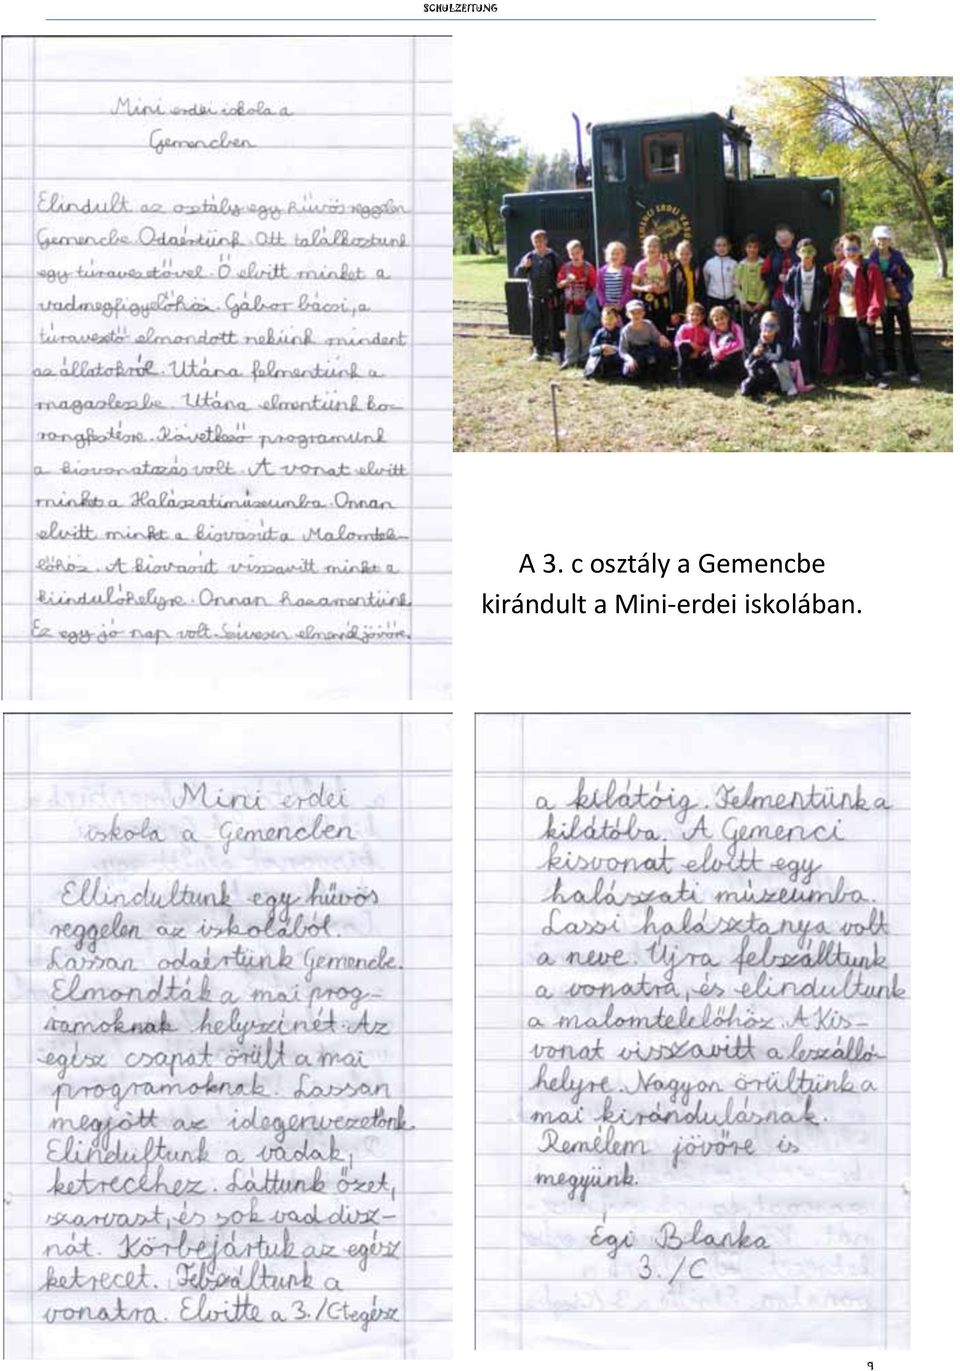 SCHULZEITUNG
Mini erdei iskola a
Gemencben
Elindult az osztály egy hűvös reggelen
Gemencbe. Odaértünk. Ott találkoztunk
egy túravezetővel. Ő elvitt minket a
vadmegfigyelőhöz. Gábor bácsi, a
túravezető elmondott nekünk mindent
az állatokról. Utána felmentünk a
magaslesbe. Utána elmentünk ko-
rongfestésre. Következő programunk
a kisvonatozás volt. A vonat elvitt
minket a Halászatimúzeumba. Onnan
elvitt minket a kisvasút a Malomtele-
lőhöz. A kisvasút visszavitt minket a
kiindulóhelyre. Onnan hazamentünk.
Ez egy jó nap volt. Szívesen elmennék jövőre.
GEMENCI ERDEI VASÚT
A 3. c osztály a Gemencbe
kirándult a Mini-erdei iskolában.
Mini erdei
iskola a Gemencben
Ellindultunk egy hűvös
reggelen az iskolából.
Lassan odaértünk Gemencbe.
Elmondták a mai prog-
ramoknak helyszínét. Az
egész csapat örült a mai
programoknak. Lassan
megjött az idegenvezetőnk.
Elindultunk a vadak,
ketrecéhez. Láttunk őzet,
szarvast, és sok vad disz-
nát. Körbejártuk az egész
ketrecet. Felszáltunk a
vonatra. Elvitte a 3./C tegész
a kilátóig. Felmentünk a
kilátóba. A Gemenci
kisvonat elvitt egy
halászati múzeumba.
Lassi halásztanya volt
a neve. Újra felszálltunk
a vonatra, és elindultunk
a malomtelelőhöz. A Kis-
vonat visszavitt a leszálló-
helyre. Nagyon örültünk a
mai kirándulásnak.
Remélem jövőre is
megyünk.
Égi Blanka
3./C
9